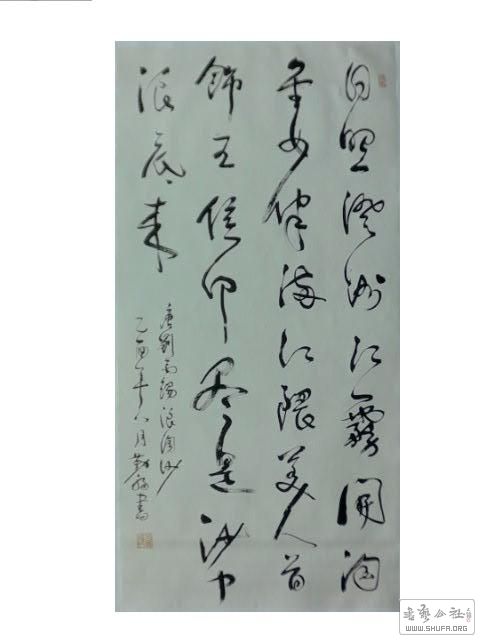 日照澄洲江霧開淘
金女伴满江隈美人首
飾王侯印尽是沙中
浪底来
唐劉禹錫浪淘沙
乙酉年八月勤書
書藝公社
WWW.SHUFA.ORG